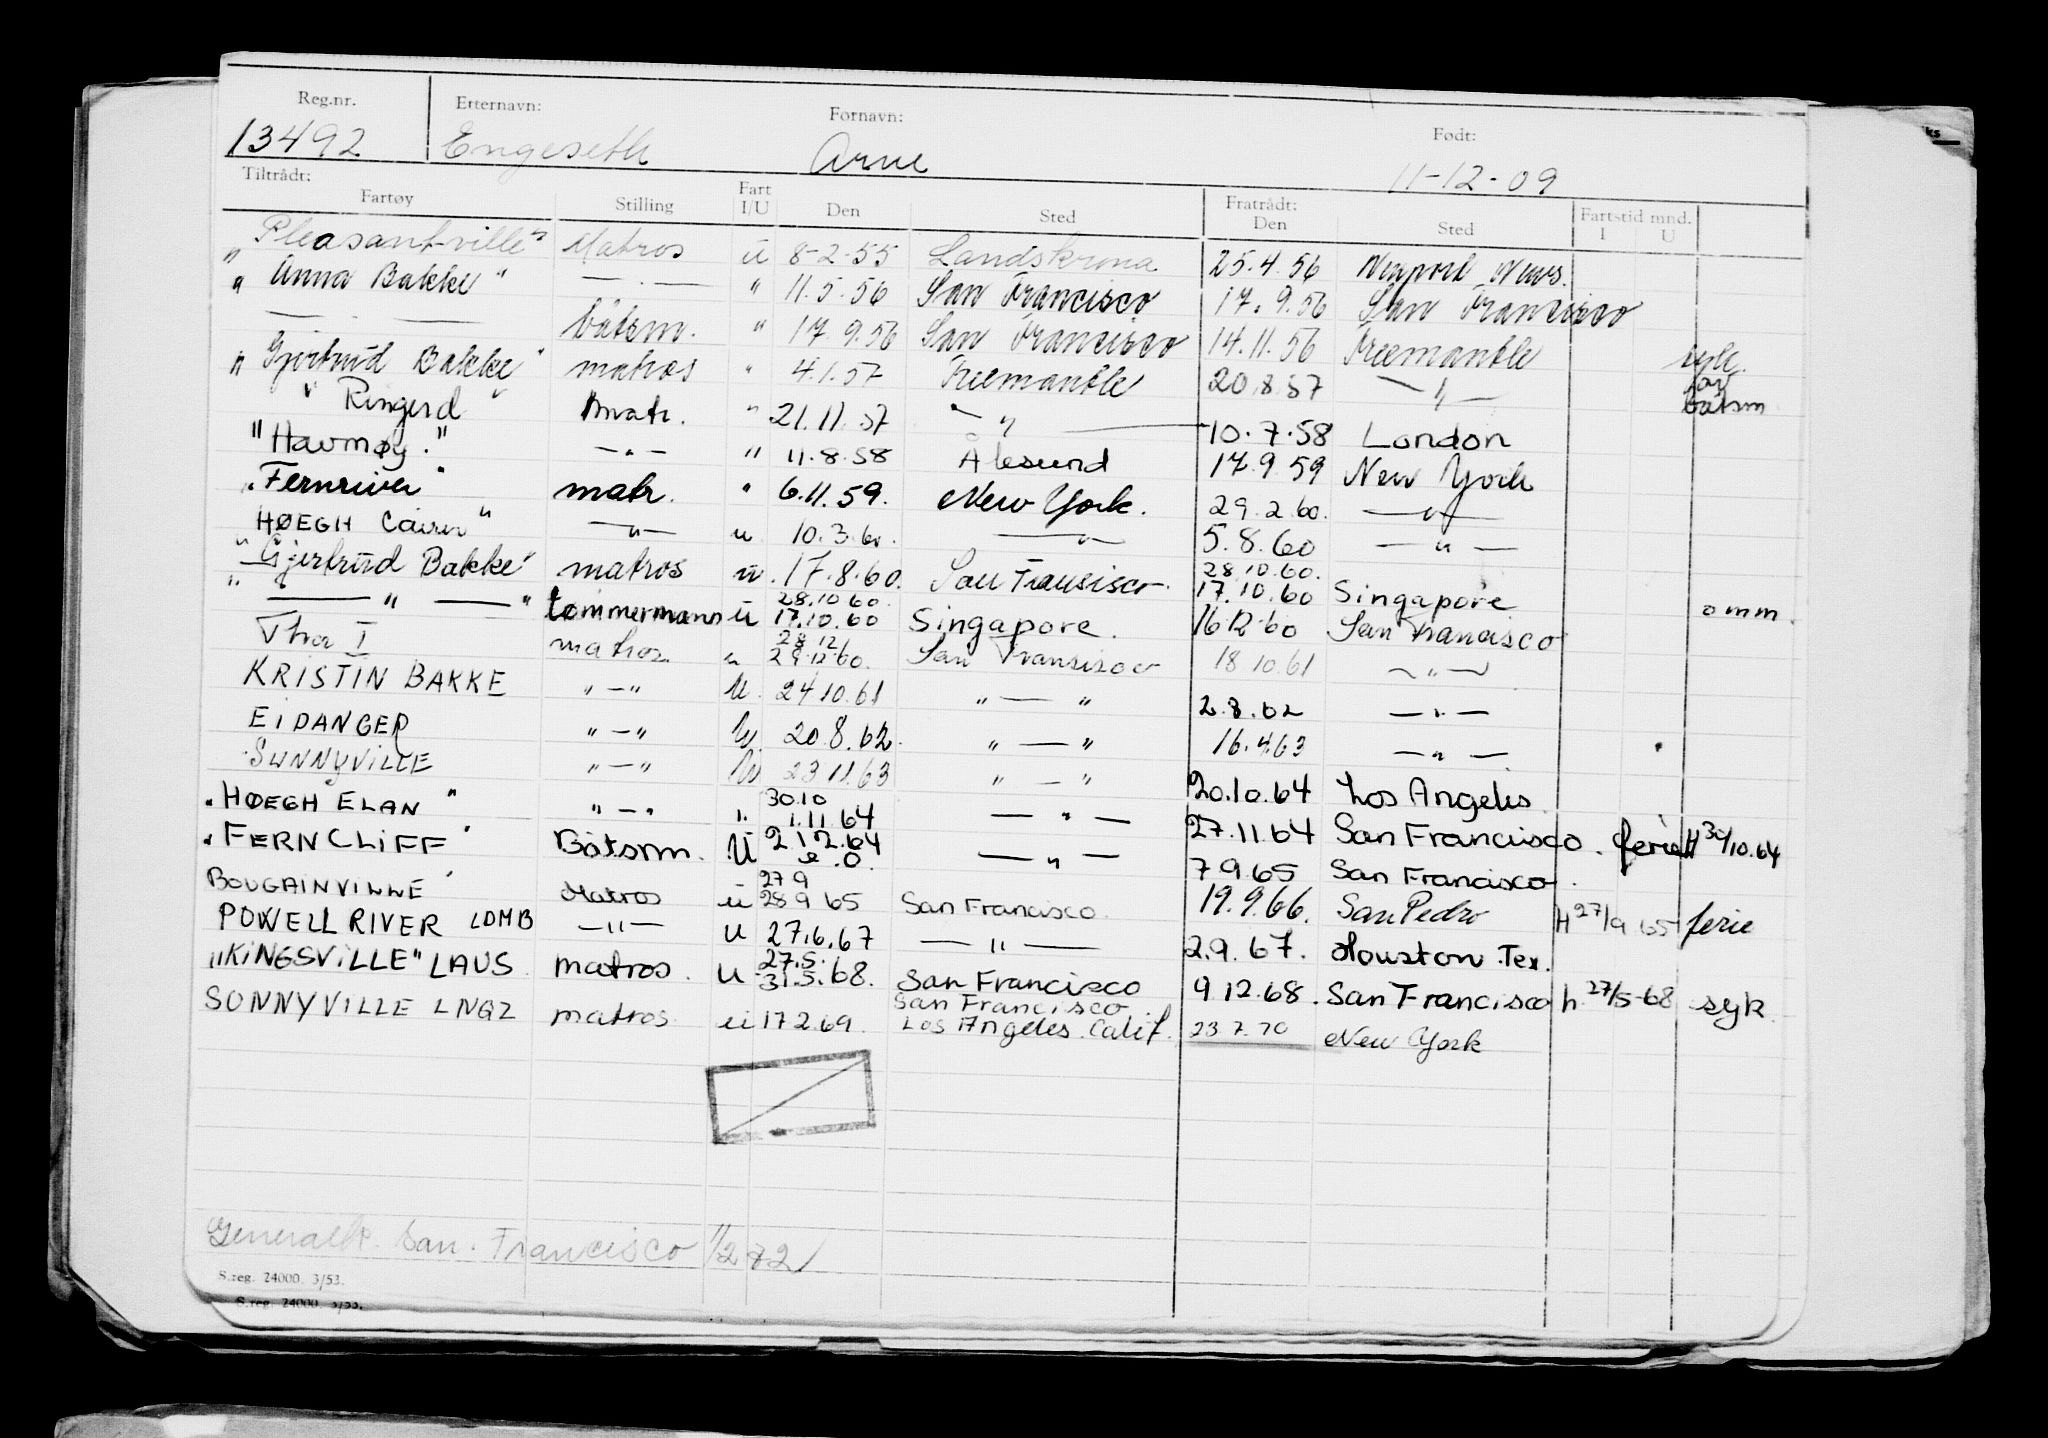 Reg.nr. Etternavn: Fornavn: Født:
13492 Engeseth Arne 11-12-09
Tiltrådt: Fratrådt:
Fartøy Stilling Fart I/U Den Sted Den Sted Fartstid mnd. I U
"Pleasantville" Matros ü 8-2-55 Landskrona 25.4.56 Newport News.
"Anna Bakke" — . — " 11.5.56 San Francisco 17.9.56 San Francisco
— . — båtsm. " 17.9.56 San Francisco 14.11.56 Freemantle syk.
"Gjertrud Bakke" matros " 4.1.57 Freemantle 20.8.57 — " — for båtsm
"Ringerd" matr. " 21.11.57 — " — 10.7.58 London
"Havmøy." — " — " 11.8.58 Ålesund 17.9.59 New York
"Fernriver" matr. " 6.11.59. New York. 29.2.60. — " —
HØEGH Cairn" — " — u 10.3.60. — " — 5.8.60 — " —
"Gjertrud Bakke" matros ü. 17.8.60. San Fransisco. 28.10.60. 17.10.60 Singapore
" — " — " tømmermann ü 28.10.60. 17.10.60 Singapore. 16.12.60 San Francisco omm.
Thor I matros " 28.12 29.12.60. San Fransisco 18.10.61 — " —
KRISTIN BAKKE " — " U. 24.10.61 " — " 2.8.62 — " —
EIDANGER " — " U. 20.8.62. " — " 16.4.63 — " —
SUNNYVILLE " — " U 23.11.63 " — " 20.10.64 Los Angeles
"HØEGH ELAN" " — " " 30.10 1.11.64 — " — 27.11.64 San Francisco. ferie H 30/10.64
"FERNCLIFF" Båtsm. Ü 2.12.64 — " — 7.9.65 San Francisco.
BOUGAINVILLE Matros ü 27 9 28 9 65 San Francisco. 19.9.66. San Pedro H 27/9 65 ferie
POWELL RIVER LDMB — " — U 27.6.67 — " — 2.9.67. Houston.Tex.
"KINGSVILLE" LAUS matros. U 27.5. 31.5.68. San Francisco 9.12.68. San Francisco h. 27/5-68 syk.
SONNYVILLE LNQZ matros. ü 17 2.69. San Francisco Los Angeles. Calif. 23.7.70 New York
Generalk. San. Francisco 1/2 72
S.reg. 24000. 3/53.
S.reg. 24000. 3/53.